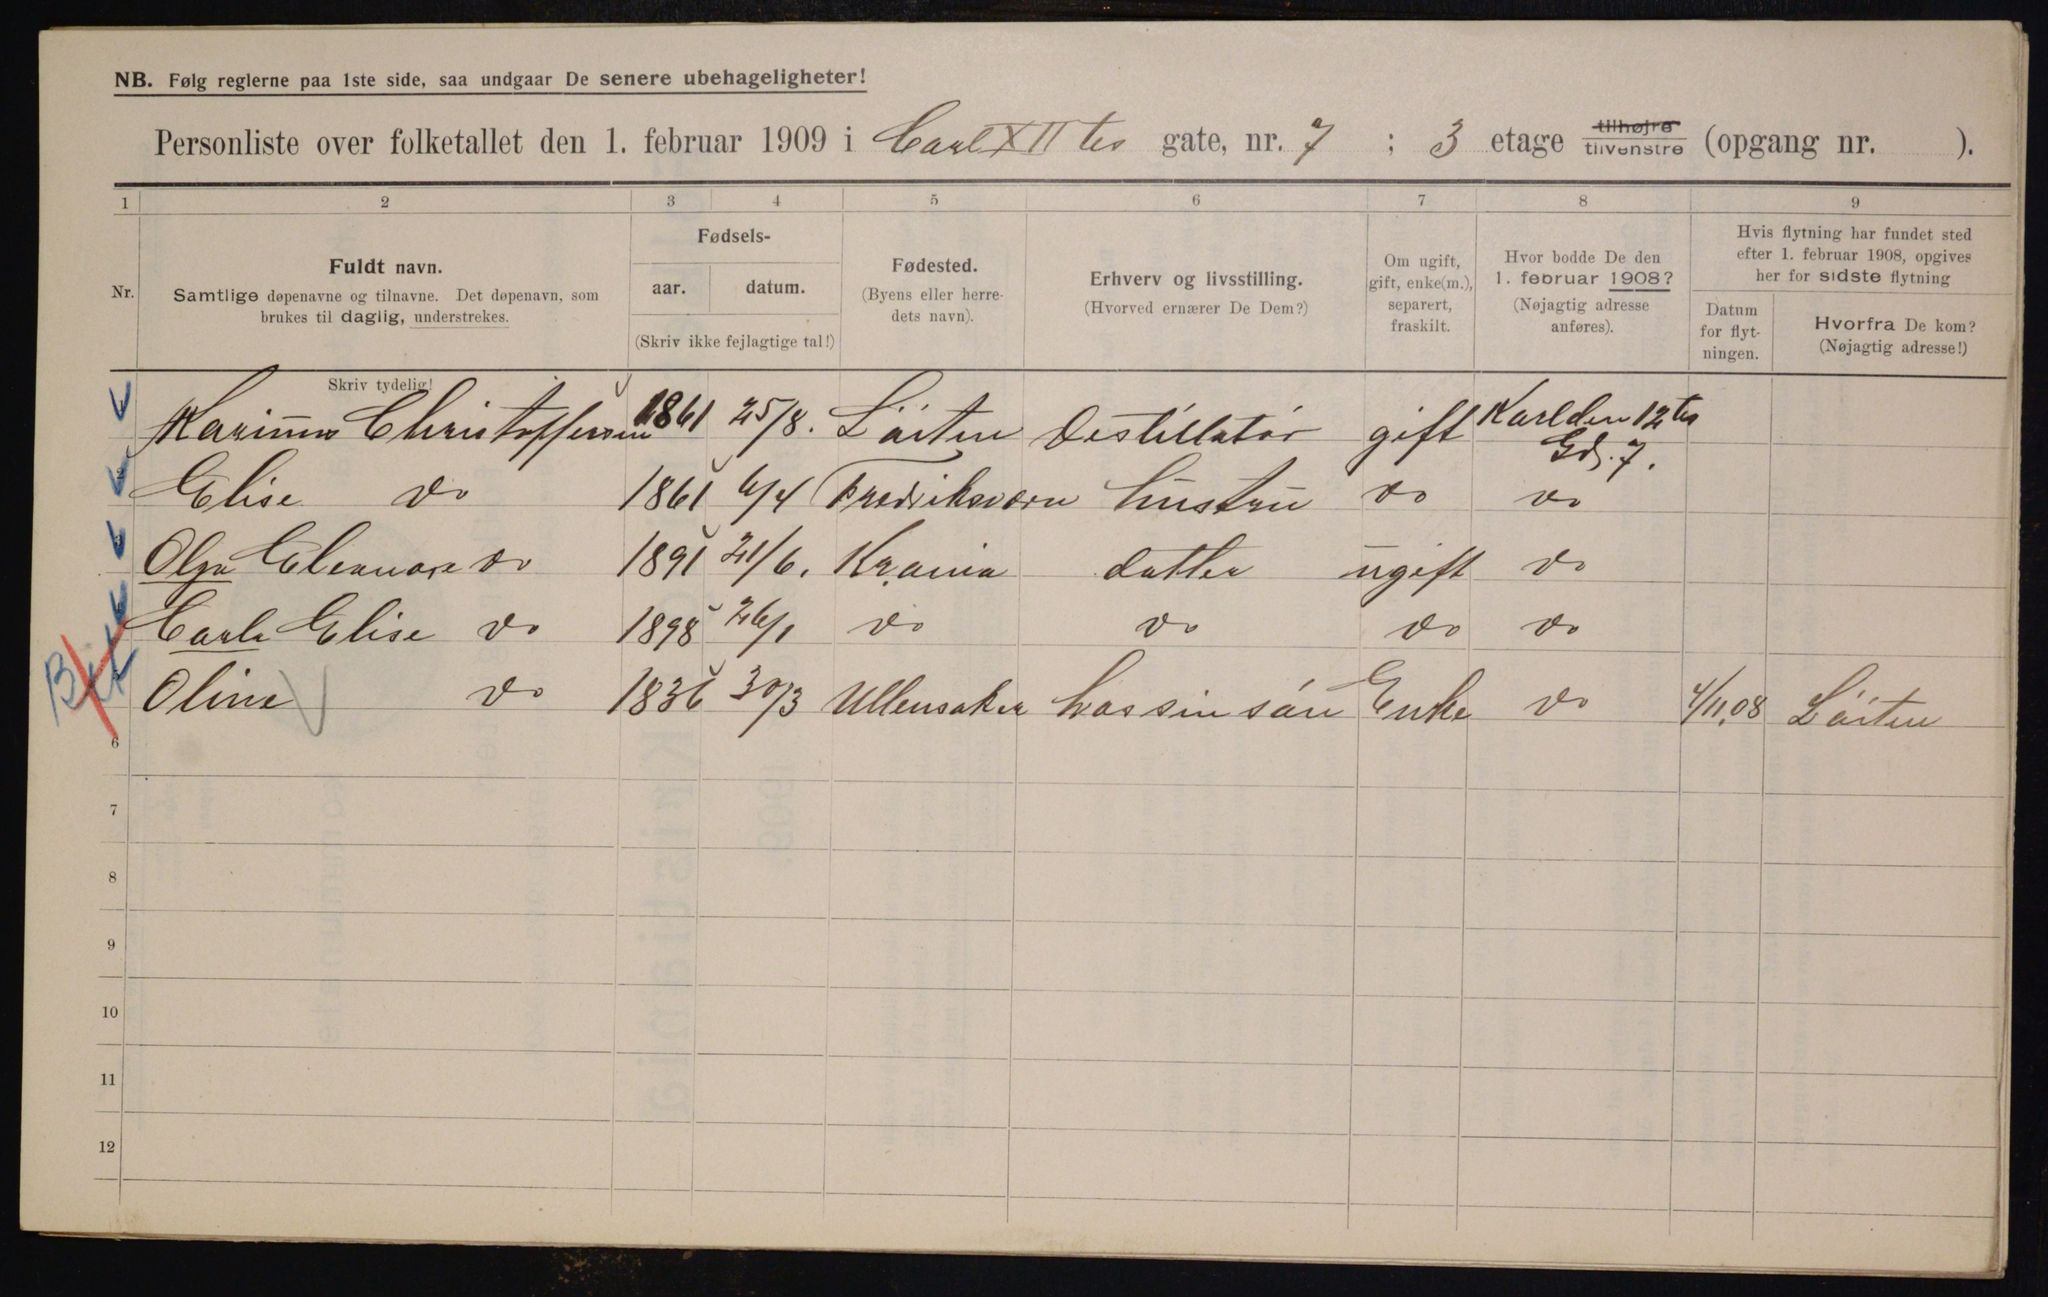 NB. Følg reglerne paa 1ste side, saa undgaar De senere ubehageligheter!
Personliste over folketallet den 1. februar 1909 i Carl XII tes gate, nr. 7 ; 3 etage tilhøjre tilvenstre (opgang nr. ).
1 2 3 4 5 6 7 8 9
Nr.
Fuldt navn.
Samtlige døpenavne og tilnavne. Det døpenavn, som
brukes til daglig, understrekes.
Skriv tydelig!
Fødsels-
aar. datum.
(Skriv ikke fejlagtige tal!)
Fødested.
(Byens eller herre-
dets navn).
Erhverv og livsstilling.
(Hvorved ernærer De Dem?)
Om ugift,
gift, enke(m.),
separert,
fraskilt.
Hvor bodde De den
1. februar 1908?
(Nøjagtig adresse
anføres).
Hvis flytning har fundet sted
efter 1. februar 1908, opgives
her for sidste flytning
Datum
for flyt-
ningen.
Hvorfra De kom?
(Nøjagtig adresse!)
1 Karinus Christoffersen 1861 25/8. Löiten Destillatör gift Karl den 12tes
Gd. 7.
2 Elise do 1861 6/4 Fredriksværn hustru do do
3 Olga Eleanore do 1891 21/6. Kr.ania datter ugift do
4 Carla Elise do 1898 26/1 do do do do
5 Oline do 1836 30/3 Ullensaker hos sin sön Enke do 4/11.08 Löiten
6
7
8
9
10
11
12